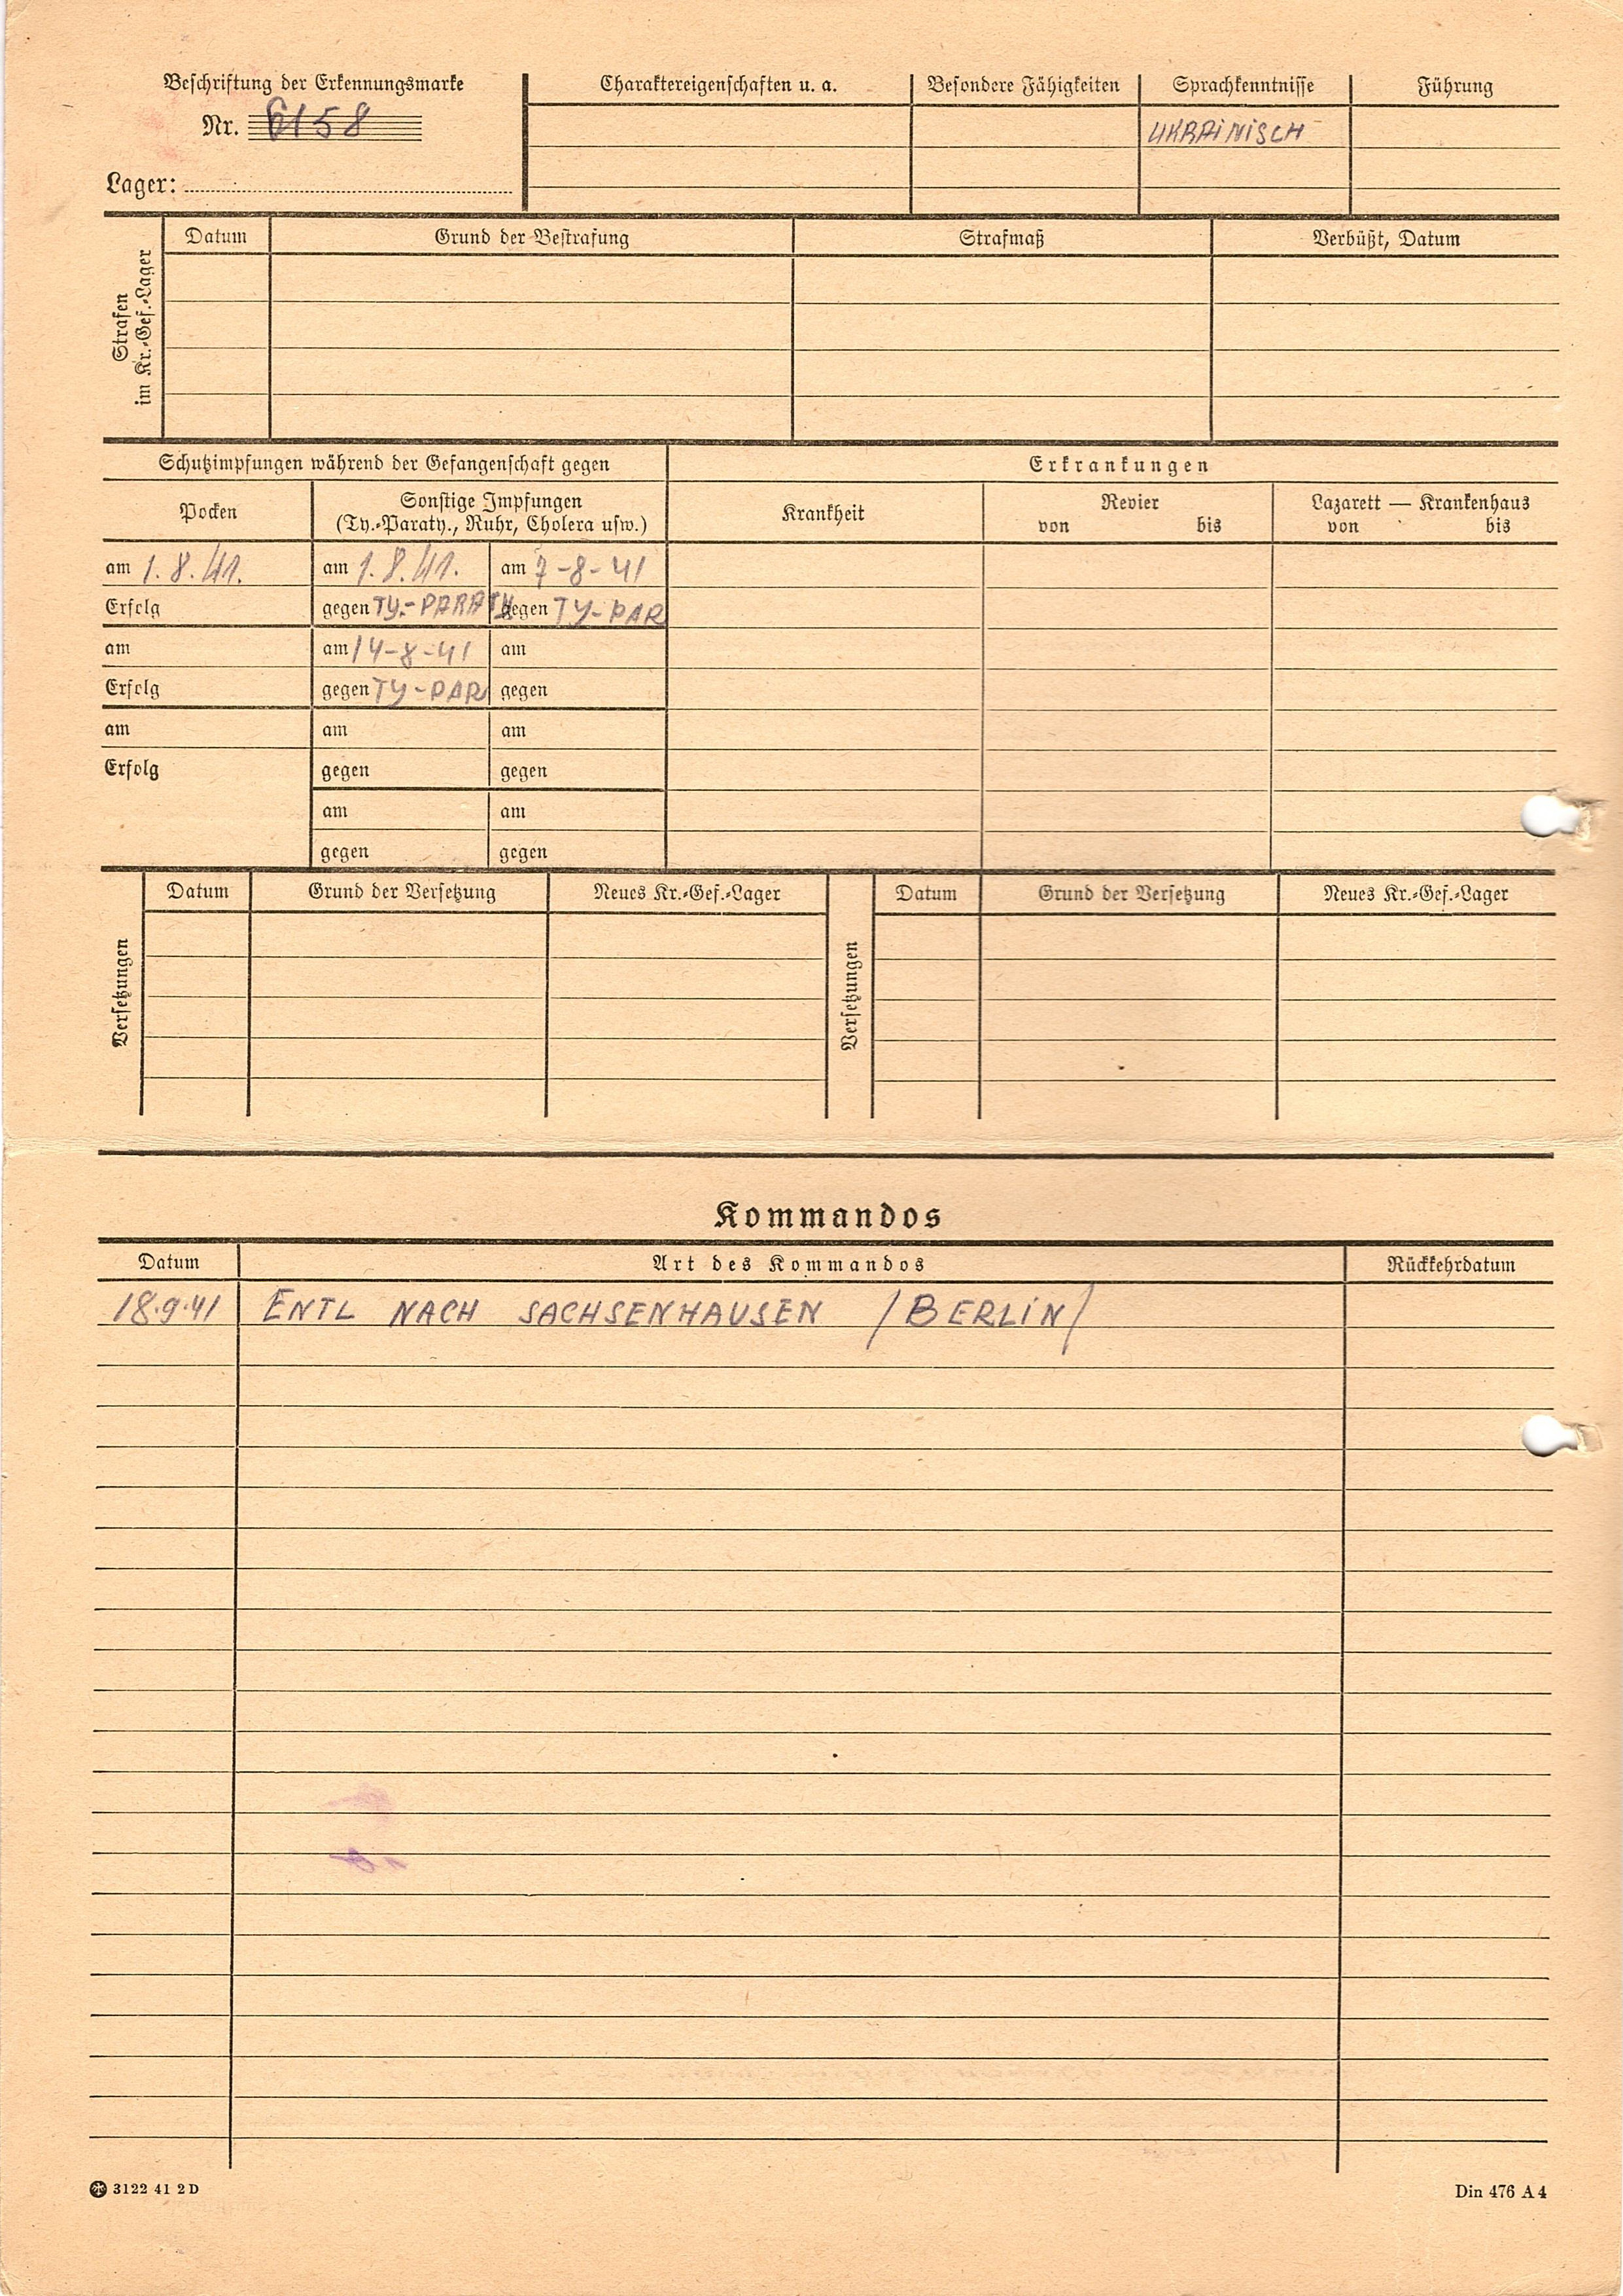 Beschriftung der Erkennungsmarke
Nr. 6158
Lager:
Charaktereigenschaften u. a.
Besondere Fähigkeiten
Sprachkenntnisse
UKRAINISCH
Führung
Strafen
im Kr.-Gef.-Lager
Datum Grund der Bestrafung Strafmaß Verbüßt, Datum
Schutzimpfungen während der Gefangenschaft gegen
Pocken
Sonstige Impfungen
(Ty.-Paraty., Ruhr, Cholera usw.)
am 1.8.41. am 1.8.41. am 7-8-41
Erfolg gegen TY.-PARATY gegen TY-PAR
am am 14-8-41 am
Erfolg gegen TY-PAR gegen
am am am
Erfolg gegen gegen
am am
gegen gegen
Erkrankungen
Krankheit
Revier
von bis
Lazarett — Krankenhaus
von bis
Versetzungen
Datum Grund der Versetzung Neues Kr.-Gef.-Lager
Versetzungen
Datum Grund der Versetzung Neues Kr.-Gef.-Lager
Kommandos
Datum Art des Kommandos Rückkehrdatum
18.9.41 ENTL NACH SACHSENHAUSEN /BERLIN/
3122 41 2 D
Din 476 A 4